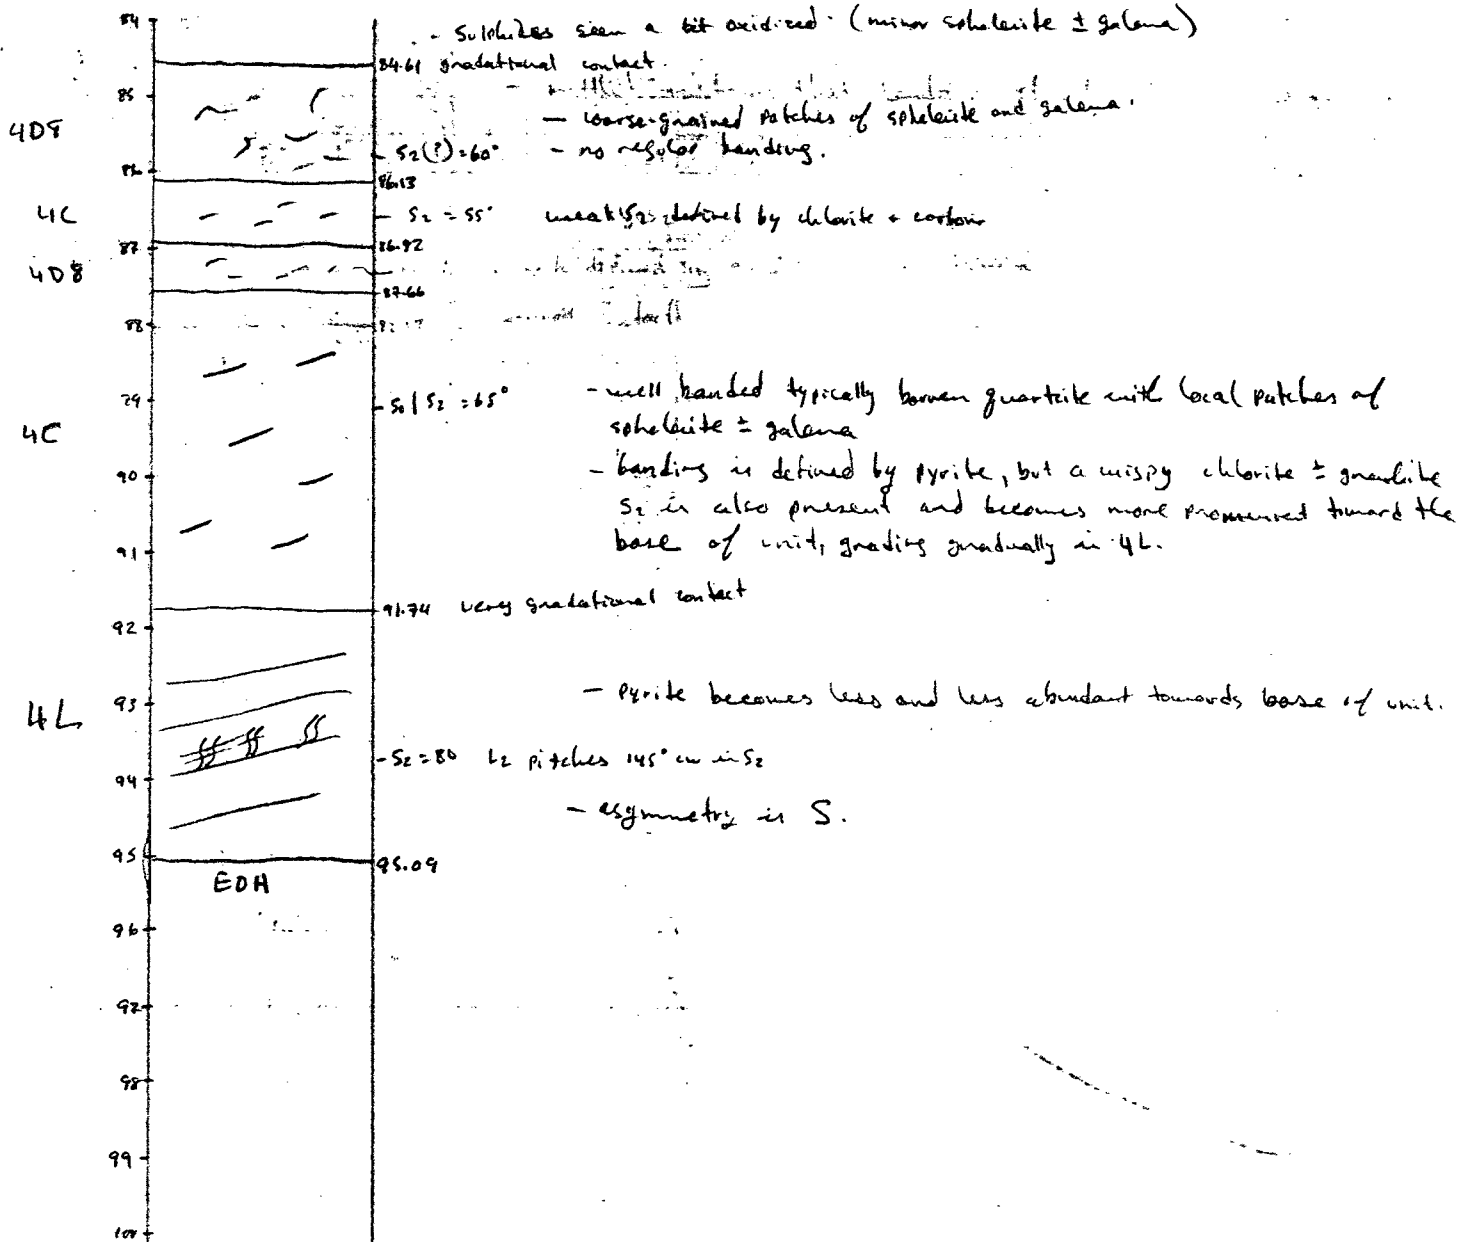 84
- Sulphides seem a bit oxidized. (minor sphalerite ± galena)
84.61 gradational contact.
85
- coarse-grained patches of sphalerite and galena.
4D8
- S2(?)=60° - no regular banding.
86
86.13
4C
- S2 = 55° weak S2 defined by chlorite + carbon
87
86.92
4D8
87.66
88
- well banded typically barren quartzite with local patches of
89
- S0/S2 = 65°
sphalerite ± galena
4C
- banding is defined by pyrite, but a wispy chlorite ± graphite
90
S2 is also present and becomes more pronounced toward the
91
base of unit, grading gradually in 4L.
91.74 very gradational contact
92
- pyrite becomes less and less abundant towards base of unit.
93
4L
- S2=80 L2 pitches 145° cw in S2
94
- asymmetry is S.
95
95.09
EOH
96
97
98
99
100